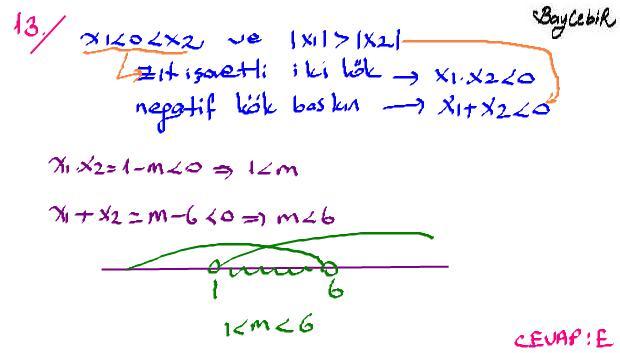 13./
BayCebiR
x₁<0<x₂ ve |x₁|>|x₂|
zıt işaretli iki kök → x₁.x₂<0
negatif kök baskın → x₁+x₂<0
x₁.x₂=1-m<0 ⇒ 1<m
x₁+x₂=m-6<0 ⇒ m<6
1 6
1<m<6
CEVAP:E